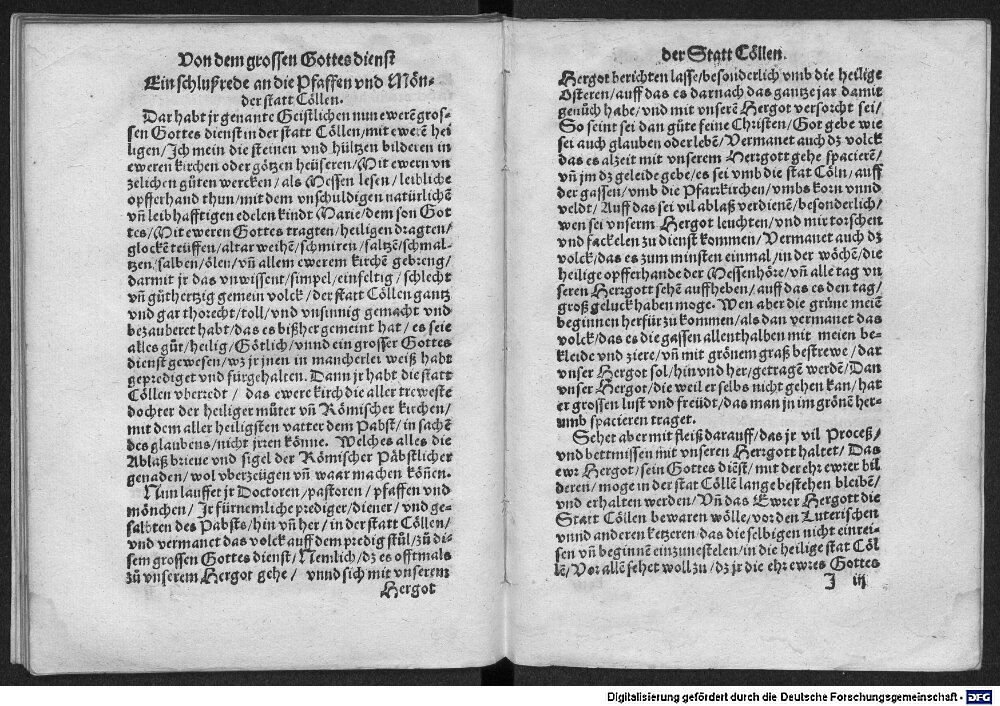 Von dem grossen Gottes dienst
Ein schlußrede an die Pfaffen vnd Mön-
der statt Cöllen.
Dar habt jr genante Geistlichen nun ewerē gros-
sen Gottes dienst in der statt Cöllen/mit ewerē hei
ligen/Ich mein die steinen vnd hültzen bilderen in
eweren kirchen oder götzen heüseren/Mit ewern vn
zelichen gůten wercken/als Messen lesen/leibliche
opfferhand thun/mit dem vnschuldigen natürlichē
vñ leibhafftigen edelen kindt Marie/dem son Got
tes/Mit eweren Gottes tragten/heiligen dragten/
glockē teüffen/altar weihē/schmiren/saltzē/schmal-
tzen/salben/ölen/vñ allem ewerem kirchē gebreng/
darmit jr das vnwissent/simpel/einfeltig/schlecht
vñ gůthertzig gemein volck/der statt Cöllen gantz
vnd gar thorecht/toll/vnd vnsinnig gemacht vnd
bezauberet habt/das es bißher gemeint hat/es seie
alles gůt/heilig/Götlich/vnnd ein grosser Gottes
dienst gewesen/wz jr jnen in mancherlei weiß habt
geprediget vnd fürgehalten. Dann jr habt die statt
Cöllen vberredt/ das ewere kirch die aller treweste
dochter der heiliger můter vñ Römischer kirchen/
mit dem aller heiligsten vatter dem Pabst/in sachē
des glaubens/nicht jrren könne. Welches alles die
Ablaß brieue vnd sigel der Römischer Päbstlicher
genaden/wol vberzügen vñ waar machen kōnen.
Nun lauffet jr Doctoren/pastoren/pfaffen vnd
mönchen/ Jr fürnemliche prediger/diener/vnd ge-
salbten des Pabsts/hin vñ her/in der statt Cöllen/
vnd vermanet das volck auff dem predig stůl/zů di-
sem grossen Gottes dienst/Nemlich/dz es offtmals
zů vnserem Hergot gehe/ vnnd sich mit vnserem
Hergot
der Statt Cöllen.
Hergot berichten lasse/besonderlich vmb die heilige
Osteren/auff das es darnach das gantze jar damit
genůch habe/vnd mit vnserē Hergot versorcht sei/
So seint sei dan gůte feine Christen/Got gebe wie
sei auch glauben oder lebē/Vermanet auch dz volck
das es alzeit mit vnserem Herrgott gehe spacierē/
vñ jm dz geleide gebe/es sei vmb die stat Cöln/auff
der gassen/vmb die Pfarrkirchen/vmbs korn vnnd
veldt/Auff das sei vil ablaß verdienē/besonderlich/
wen sei vnserm Hergot leuchten/vnd mir torschen
vnd fackelen zu dienst kommen/Vermanet auch dz
volck/das es zum minsten einmal/in der wöchē/die
heilige opfferhande der Messenhöre/vñ alle tag vn
seren Herrgott sehē auffheben/auff das es den tag/
groß geluck haben moge. Wen aber die grüne meiē
beginnen herfür zu kommen/als dan vermanet das
volck/das es die gassen allenthalben mit meien be-
kleide vnd ziere/vñ mit grönem graß bestrewe/dar
vnser Hergot sol/hin vnd her/getragē werdē/Dan
vnser Hergot/die weil er selbs nicht gehen kan/hat
er grossen lust vnd freüdt/das man jn im grönē her-
umb spacieren traget.
Sehet aber mit fleiß darauff/das jr vil Proceß/
vnd bettmissen mit vnseren Herrgott haltet/Das
ewr Hergot/sein Gottes diēst/mit der ehr ewrer bil
deren/moge in der stat Cöllē lange bestehen bleibē/
vnd erhalten werden/Vñ das Ewrer Hergott die
Statt Cöllen bewaren wölle/vor den Luterischen
vnnd anderen ketzeren/das die selbigen nicht einrei-
sen vñ beginnē einzunestelen/in die heilige stat Cöl
lē/Vor allē sehet woll zu/dz jr die ehr ewres Gottes
I iij
Digitalisierung gefördert durch die Deutsche Forschungsgemeinschaft - DFG